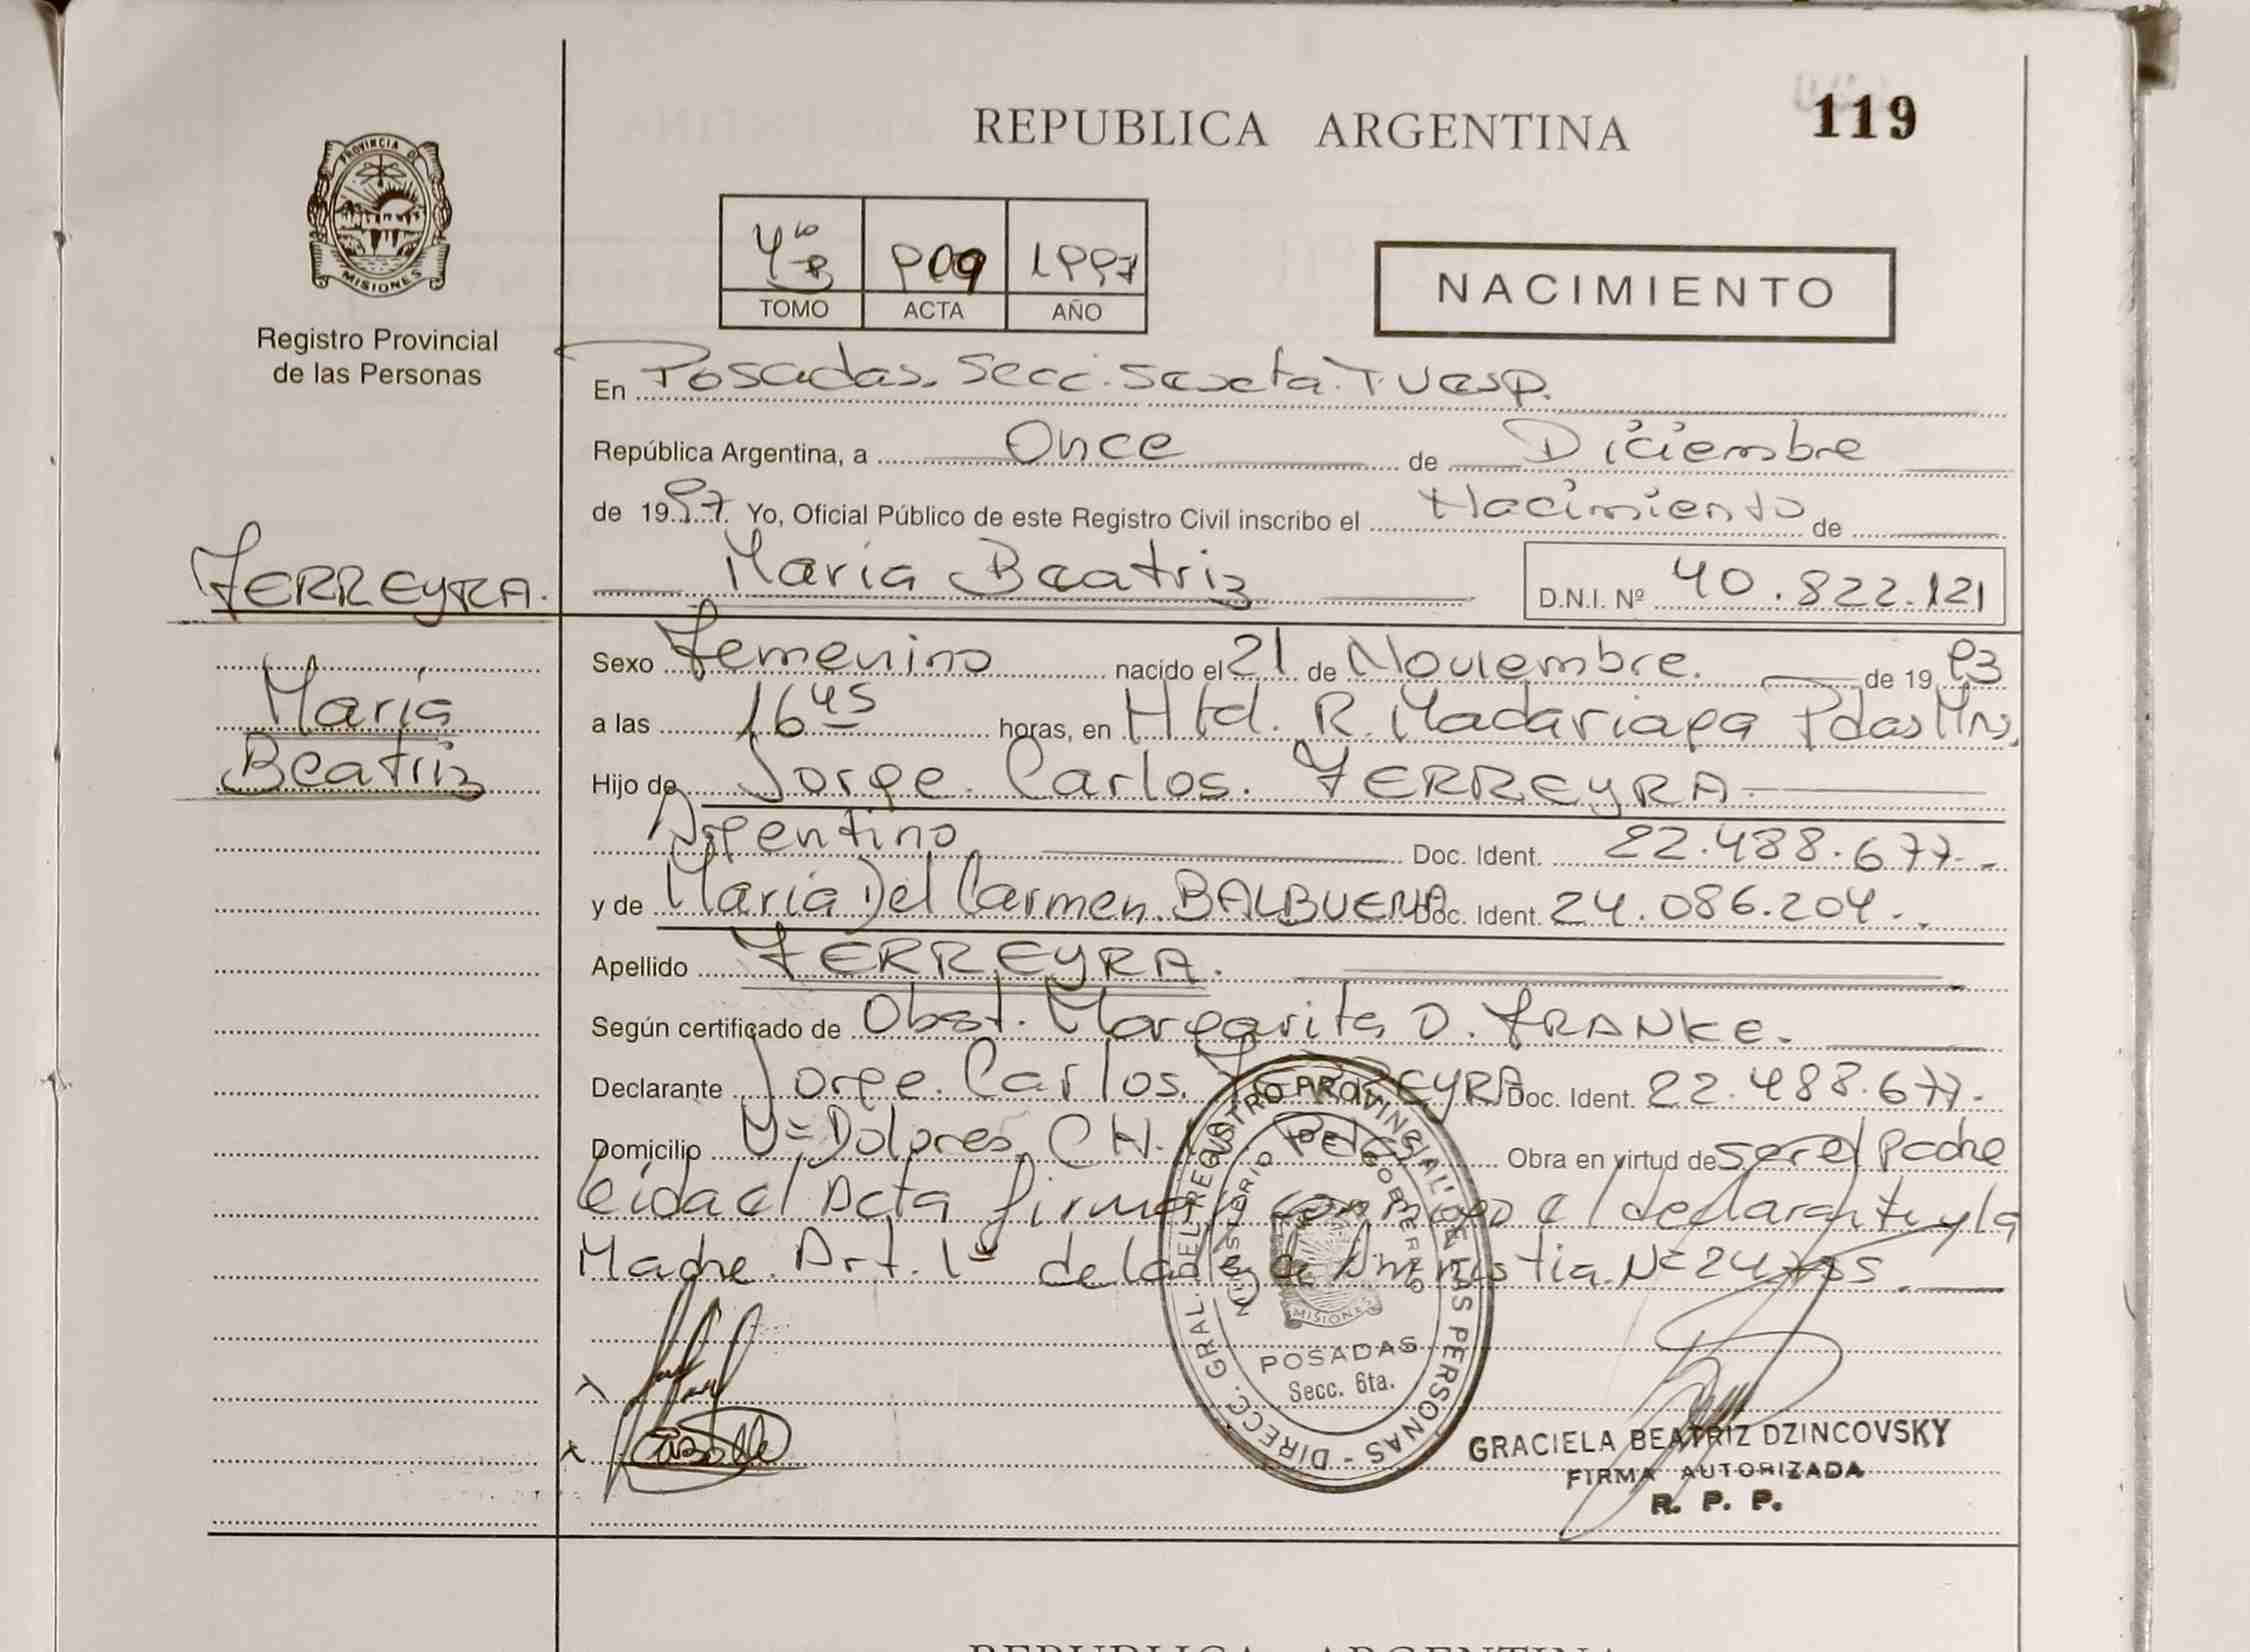 REPUBLICA ARGENTINA
119
PROVINCIA DE
MISIONES
Registro Provincial
de las Personas
909 1997
TOMO ACTA AÑO
NACIMIENTO
En Posadas. Secc. Sexta. T. Vesp.
República Argentina, a Once de Diciembre
de 1997. Yo, Oficial Público de este Registro Civil inscribo el Nacimiento de
FERREYRA. María Beatriz D.N.I. Nº 40.822.121
María
Beatriz
Sexo Femenino nacido el 21 de Noviembre. de 19 93
a las 16 45 horas, en Htal. R. Madariaga Pdas Mns.
Hijo de Jorge. Carlos. FERREYRA
Argentino Doc. Ident. 22.488.677.-
y de María Del Carmen. BALBUENA Doc. Ident. 24.086.204.-
Apellido FERREYRA.
Según certificado de Obst. Margarita D. FRANKE.
Declarante Jorge. Carlos. FERREYRA Doc. Ident. 22.488.677.-
Domicilio Vª Dolores. CH. Obra en virtud de ser el Padre
leida el Acta firman conmigo el declarante y la
Madre. Art. 1º de la de Amnistia. Nº
DIRECC. GRAL. DEL REGISTRO PROVINCIAL DE LAS PERSONAS
MINISTERIO DE GOBIERNO
MISIONES
POSADAS
Secc. 6ta.
GRACIELA BEATRIZ DZINCOVSKY
FIRMA AUTORIZADA
R. P. P.
REPUBLICA ARGENTINA